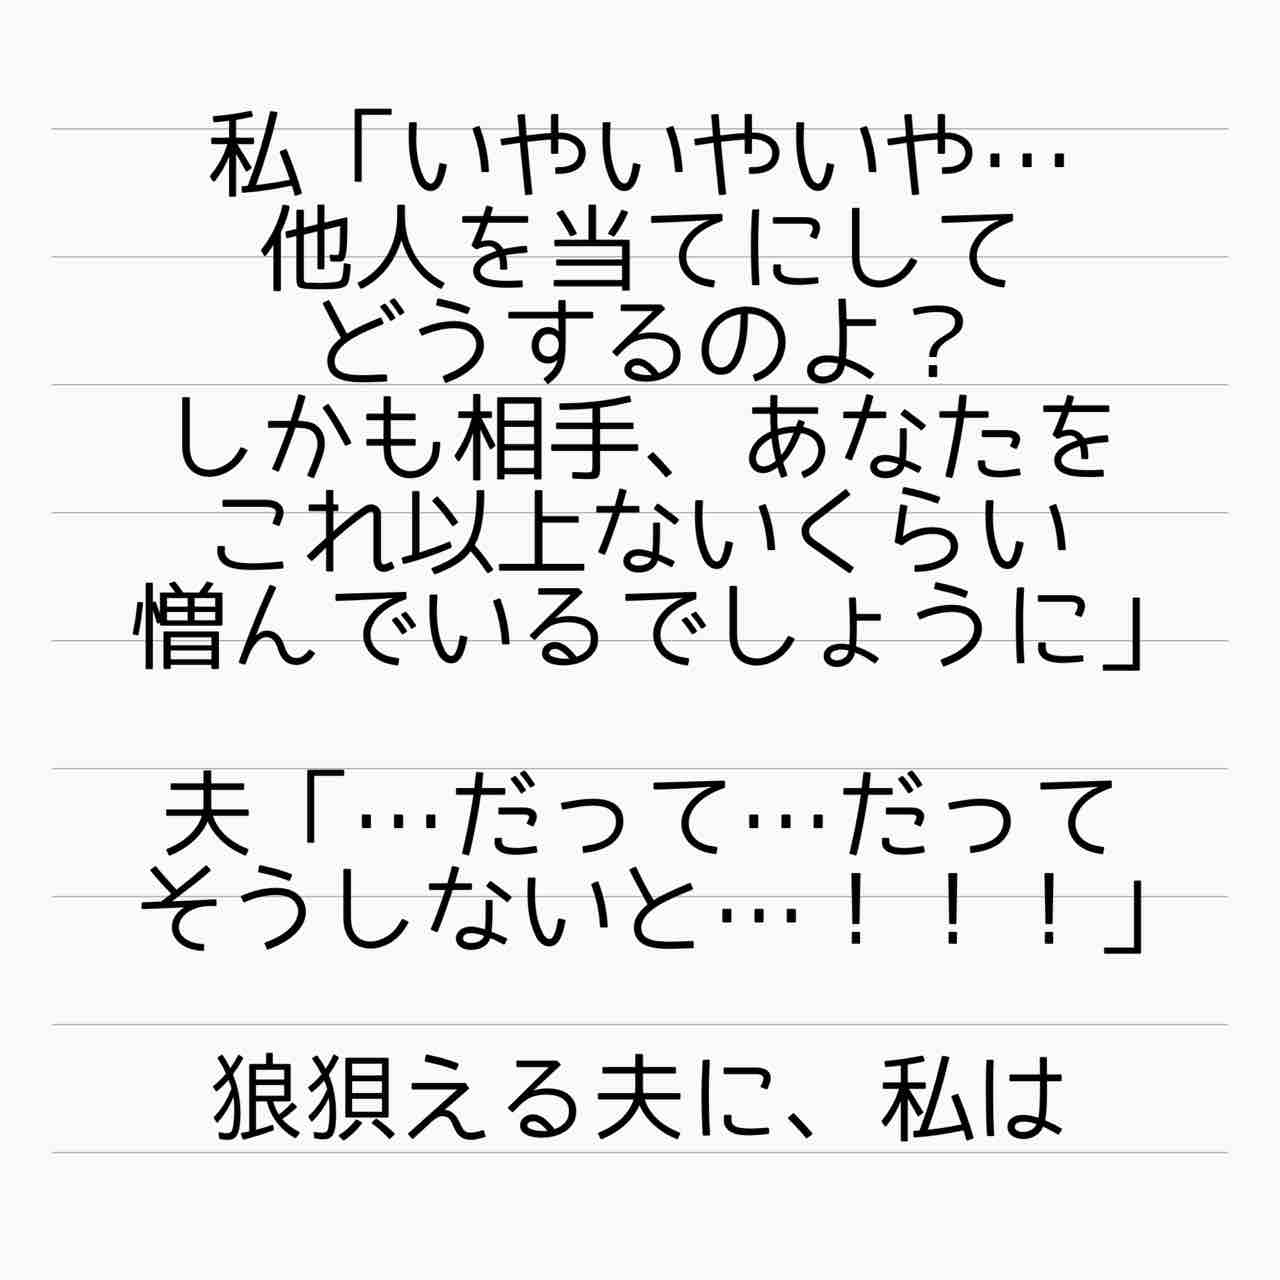 私「いやいやいや…
他人を当てにして
どうするのよ？
しかも相手、あなたを
これ以上ないくらい
憎んでいるでしょうに」
夫「…だって…だって
そうしないと…！！！」
狼狽える夫に、私は